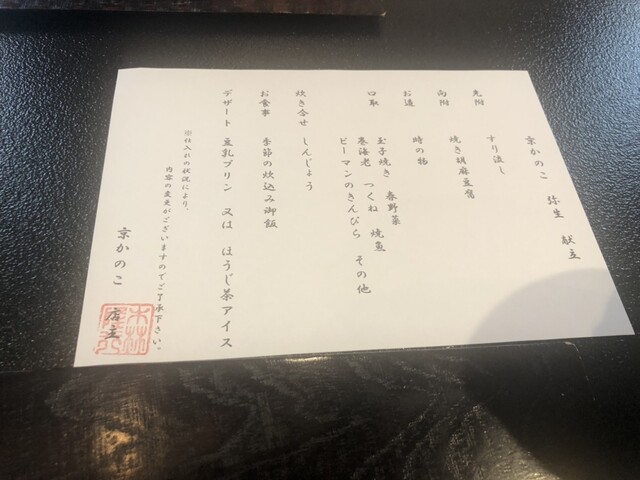 京かのこ 弥生 献立
先附 すり流し
向附 焼き胡麻豆腐
お造 時の物
口取 玉子焼き 春野菜
巻海老 つくね 焼魚
ピーマンのきんぴら その他
炊き合せ しんじょう
お食事 季節の炊込み御飯
デザート 豆乳プリン 又は ほうじ茶アイス
※仕入れの状況により、
内容の変更がございますのでご了承下さい。
京かのこ 店主